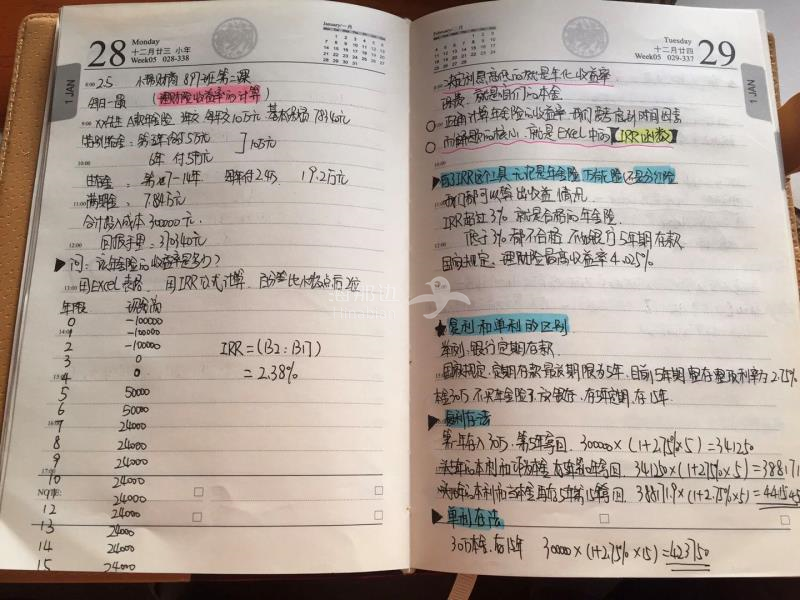 28
Monday
十二月廿三 小年
Week05 028-338
January/一月
1 JAN
2.5 小帮财商897班第二课
每日一题 (理财险收益率的计算)
xx先生 A款年金险 3年交 每年交10万元 基本保额 78340元
特别年金: 第5年领5万元
6年 付5万元
] 10万元
生存金: 第7-14年 每年付2.4万 19.2万元
满期金: 7.84万元
合计投入成本 300000元
回报手里: 370340元
问: 该年金险的收益率是多少?
用Excel表格 用IRR公式计算 百分差比小数点后2位
年度 现金流
0 -100000
1 -100000
2 -100000
3 0
4 0
5 50000
6 50000
7 24000
8 24000
9 24000
10 24000
11 24000
12 24000
13 24000
14 24000
15 24000
IRR=(B2:B17)
=2.38%
NOTE:
February/二月
Tuesday
十二月廿四
Week05 029-337
29
1 JAN
决定利息高低的就是年化收益率
保费, 就是咱们的本金
正确计算年金险的收益率 我们要考虑到时间因素
而解题的核心, 就是Excel中的【IRR函数】
用IRR这个工具 无论是年金险 万能险 还是分红险
我们都可以算出收益情况
IRR超过3% 就是合格的年金险
低于3% 都不合格 不如银行5年期存款
国家规定, 理财险最高收益率4.025%
复利和单利的区别
举例: 银行定期存款
国家规定, 定期存款最长期限为5年, 目前5年期整存整取利率为2.75%
本金30万 不买年金险了, 放银行, 存5年定期, 存15年
复利存法
第一年存入30万, 第5年写回, 300000×(1+2.75%×5)=341250
头5年的本利和作为本金 存5年第10年写回, 341250×(1+2.75%×5)=388171
头10年的本利和当本金 再存5年第15年写回, 388171.9×(1+2.75%×5)=441545
单利存法
30万本金, 存15年 300000×(1+2.75%×15)=423750
海那边